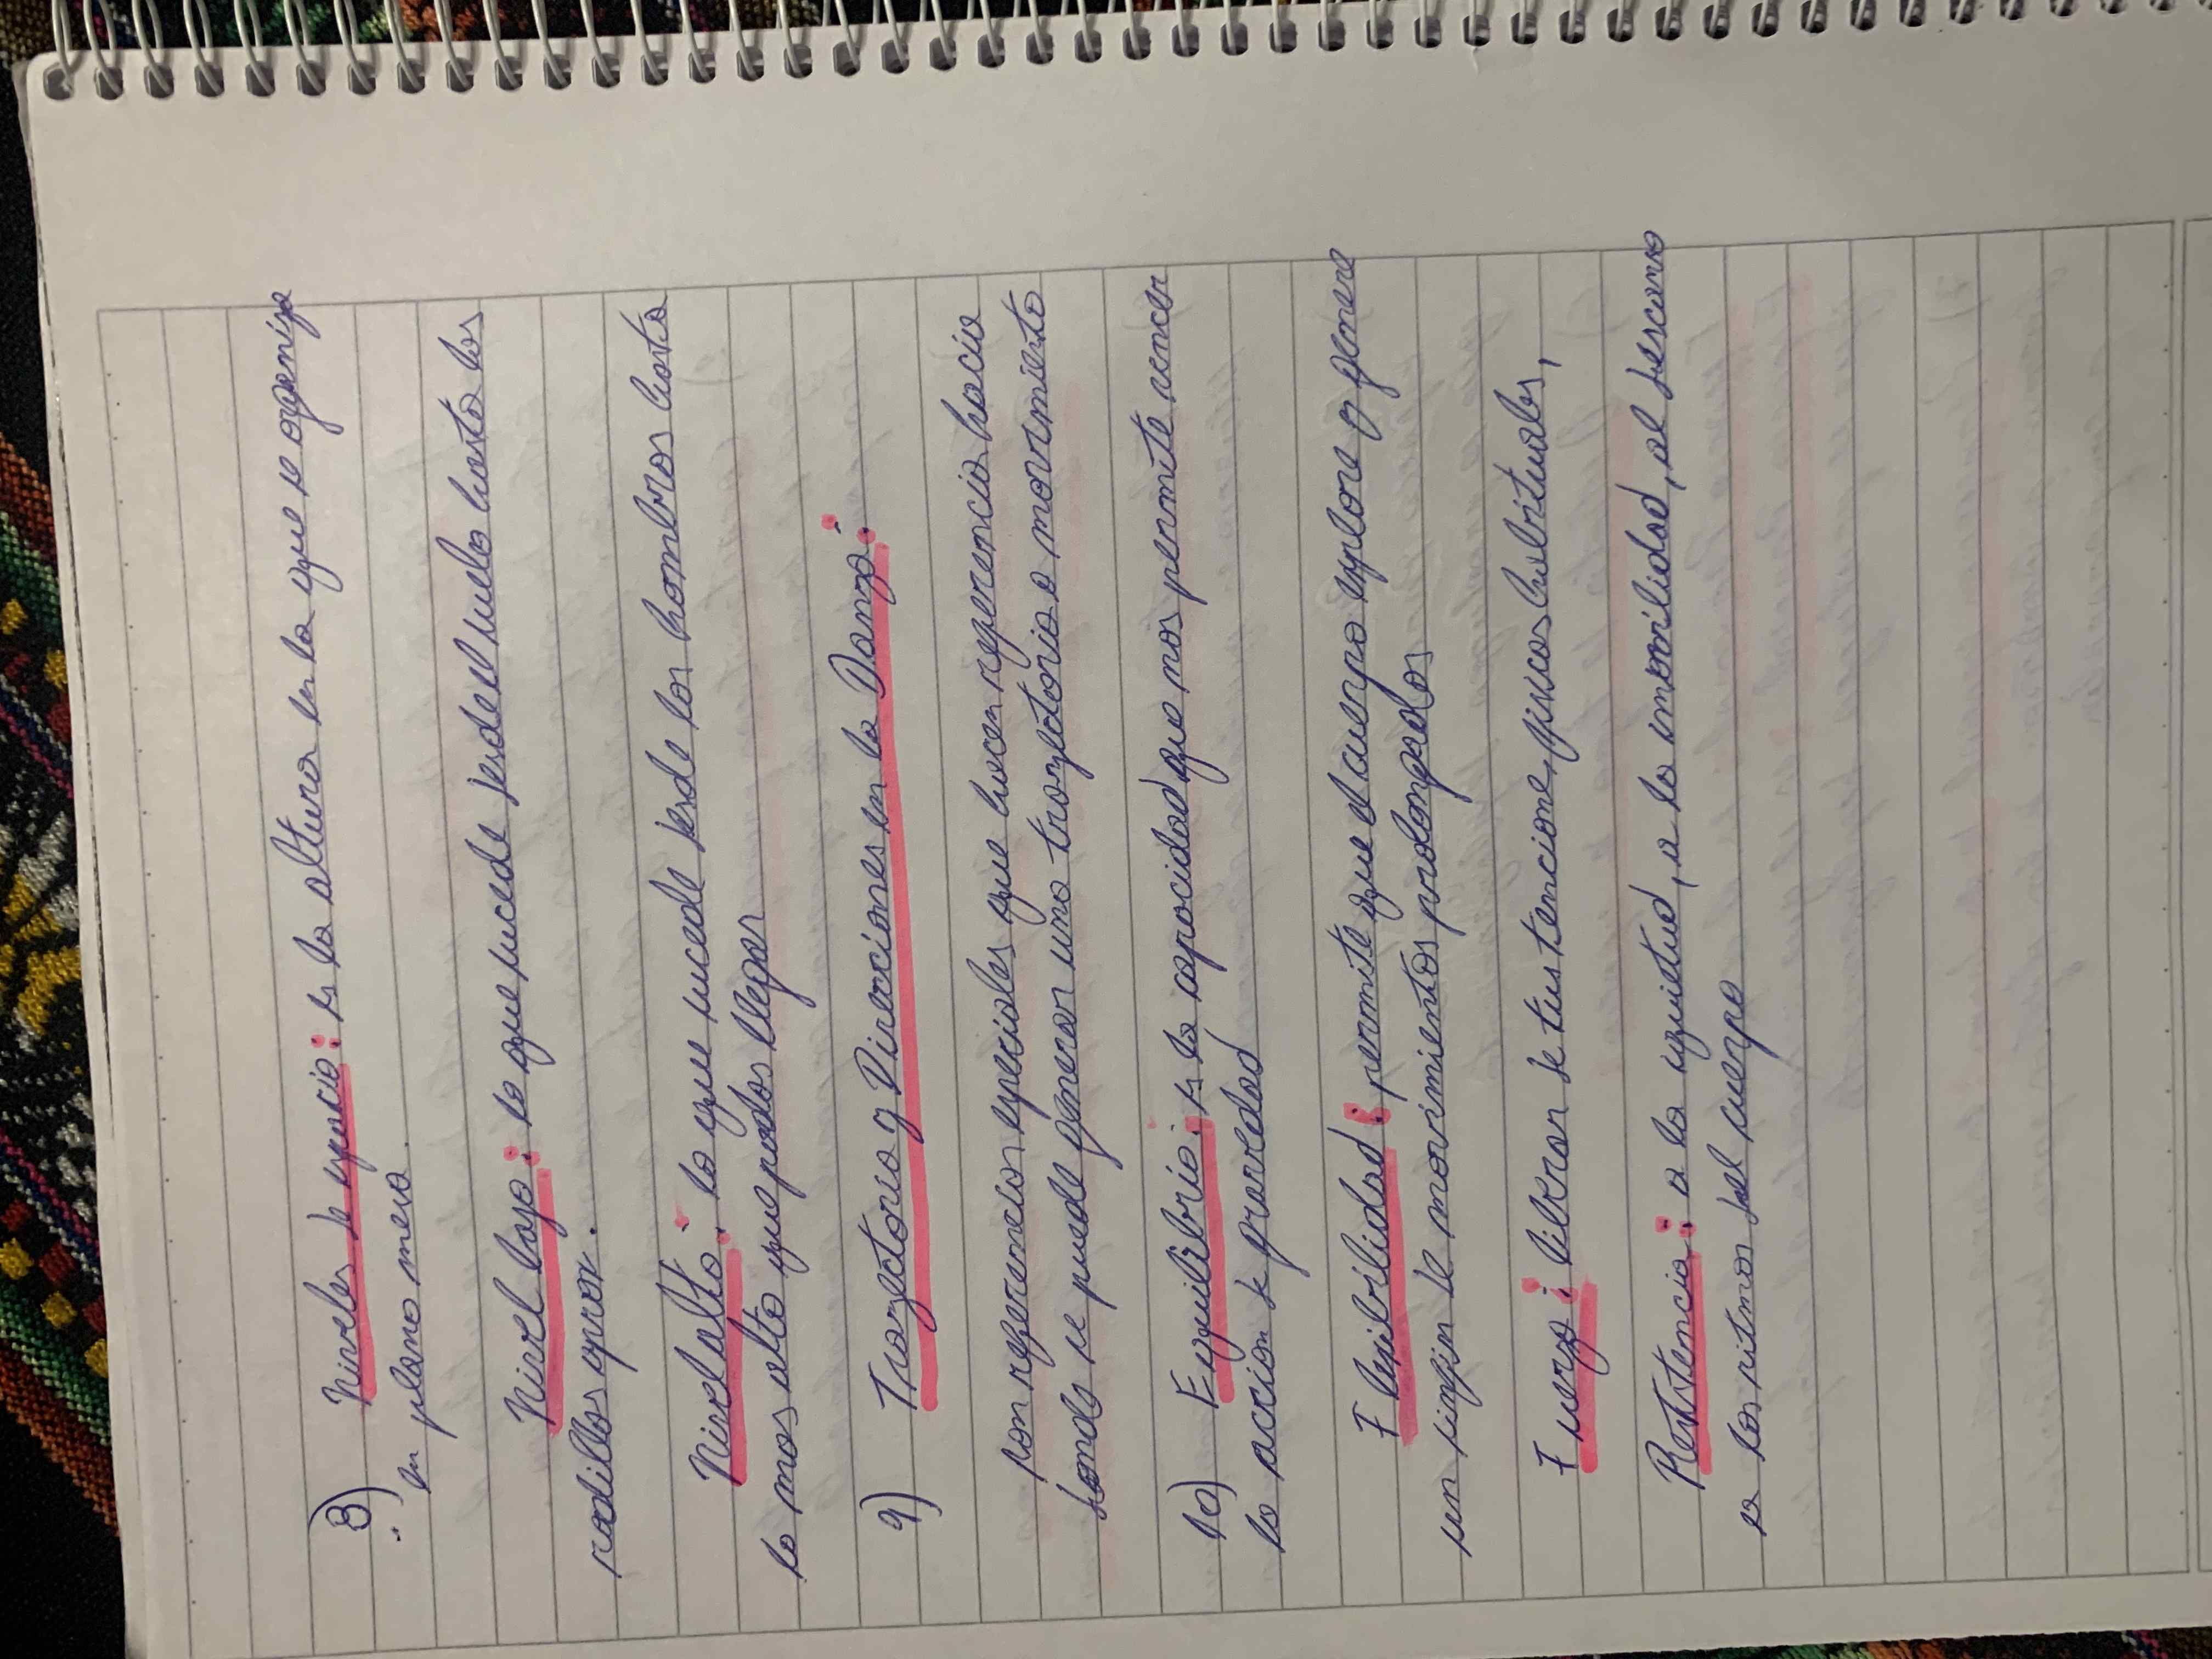 8) Niveles de espacio: es la altura en la que se organiza
un plano mesa.
Nivel bajo: lo que sucede desde el suelo hasta las
rodillas aprox.
Nivel alto: lo que sucede desde los hombros hasta
lo mas alto que podas llegar
9) Trayectoria y Direcciones en la Danza:
son referencias espaciales que hacen referencia hacia
donde se puede generar una trayectoria o movimiento
10) Equilibrio: es la capacidad que nos permite vencer
la accion de gravedad
Flexibilidad: permite que el cuerpo explore y genere
un sinfin de movimientos prolongados
Fuerza: liberar de tus tenciones fisicas habituales,
Resistencia: a la quietud, a la inmovilidad, al descanso
a los ritmos del cuerpo